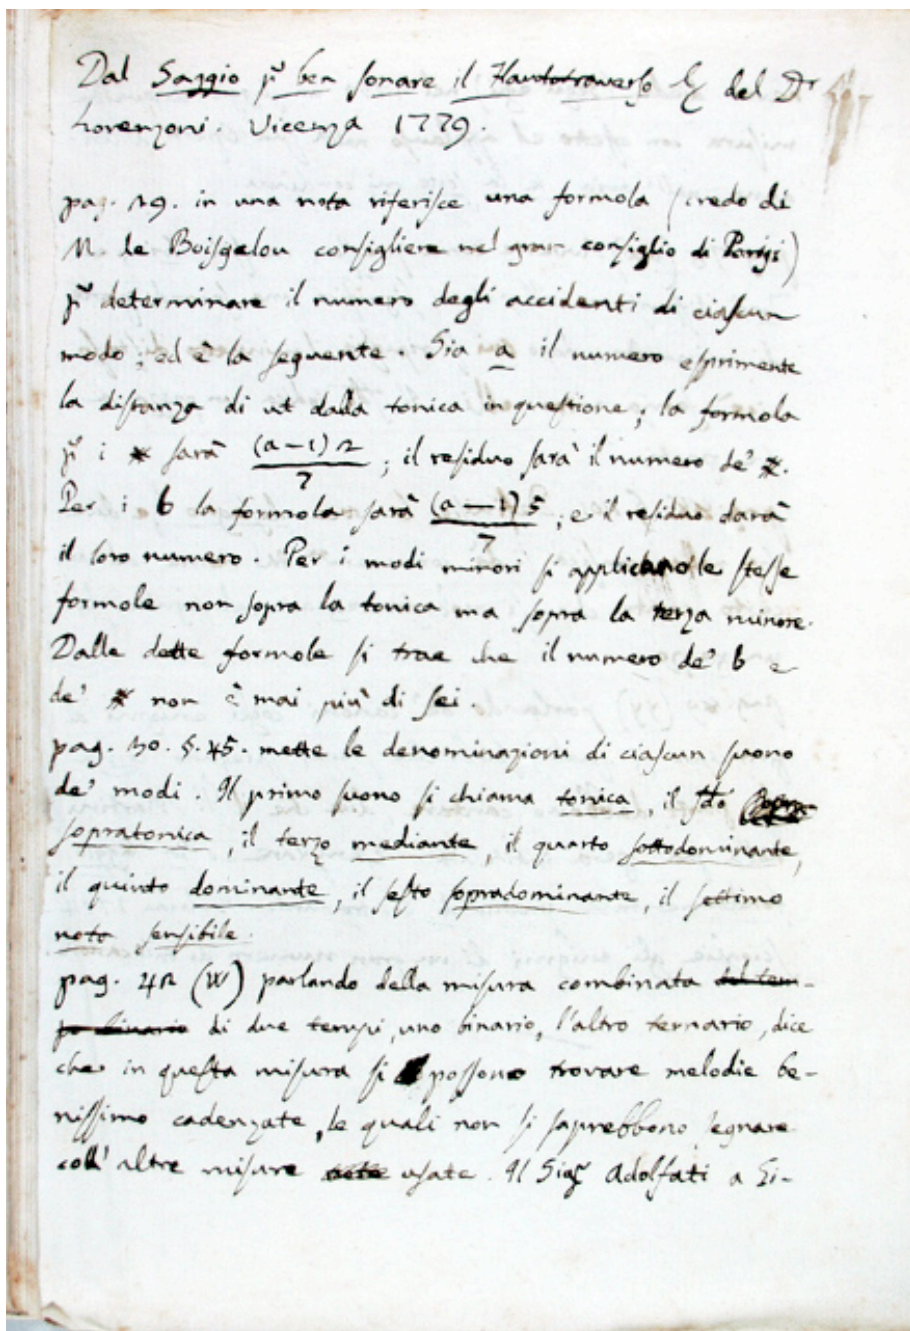 Dal Saggio p ben sonare il Flautotraverso &c del Dr
Lorenzoni. Vicenza 1779.
pag. 29. in una nota riferisce una formola (credo di
M. de Boisgelou consigliere nel gran consiglio di Parigi)
p determinare il numero degli accidenti di ciascun
modo; ed è la seguente. Sia a il numero esprimente
la distanza di ut dalla tonica in questione; la formola
p i # sarà (a-1)2/7; il residuo sarà il numero de' #.
Per i b la formola sarà (a-1)5/7; e il residuo darà
il loro numero. Per i modi minori si applicano le stesse
formole non sopra la tonica ma sopra la terza minore.
Dalle dette formole si trae che il numero de' b e
de' # non è mai più di sei.
pag. 30. §. 45. mette le denominazioni di ciascun suono
de' modi. Il primo suono si chiama tonica, il 2do
sopratonica, il terzo mediante, il quarto sottodominante,
il quinto dominante, il sesto sopradominante, il settimo
nota sensibile.
pag. 42 (W) parlando della misura combinata del tem-
po binario di due tempi, uno binario, l'altro ternario, dice
che in questa misura si possono trovare melodie be-
nissimo cadenzate, le quali non si saprebbono segnare
coll' altre misure usate. Il Sigr Adolfati a Gi-